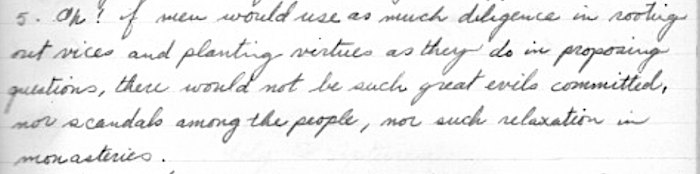 5. Oh! if men would use as much diligence in rooting
out vices and planting virtues as they do in proposing
questions, there would not be such great evils committed,
nor scandals among the people, nor such relaxation in
monasteries.